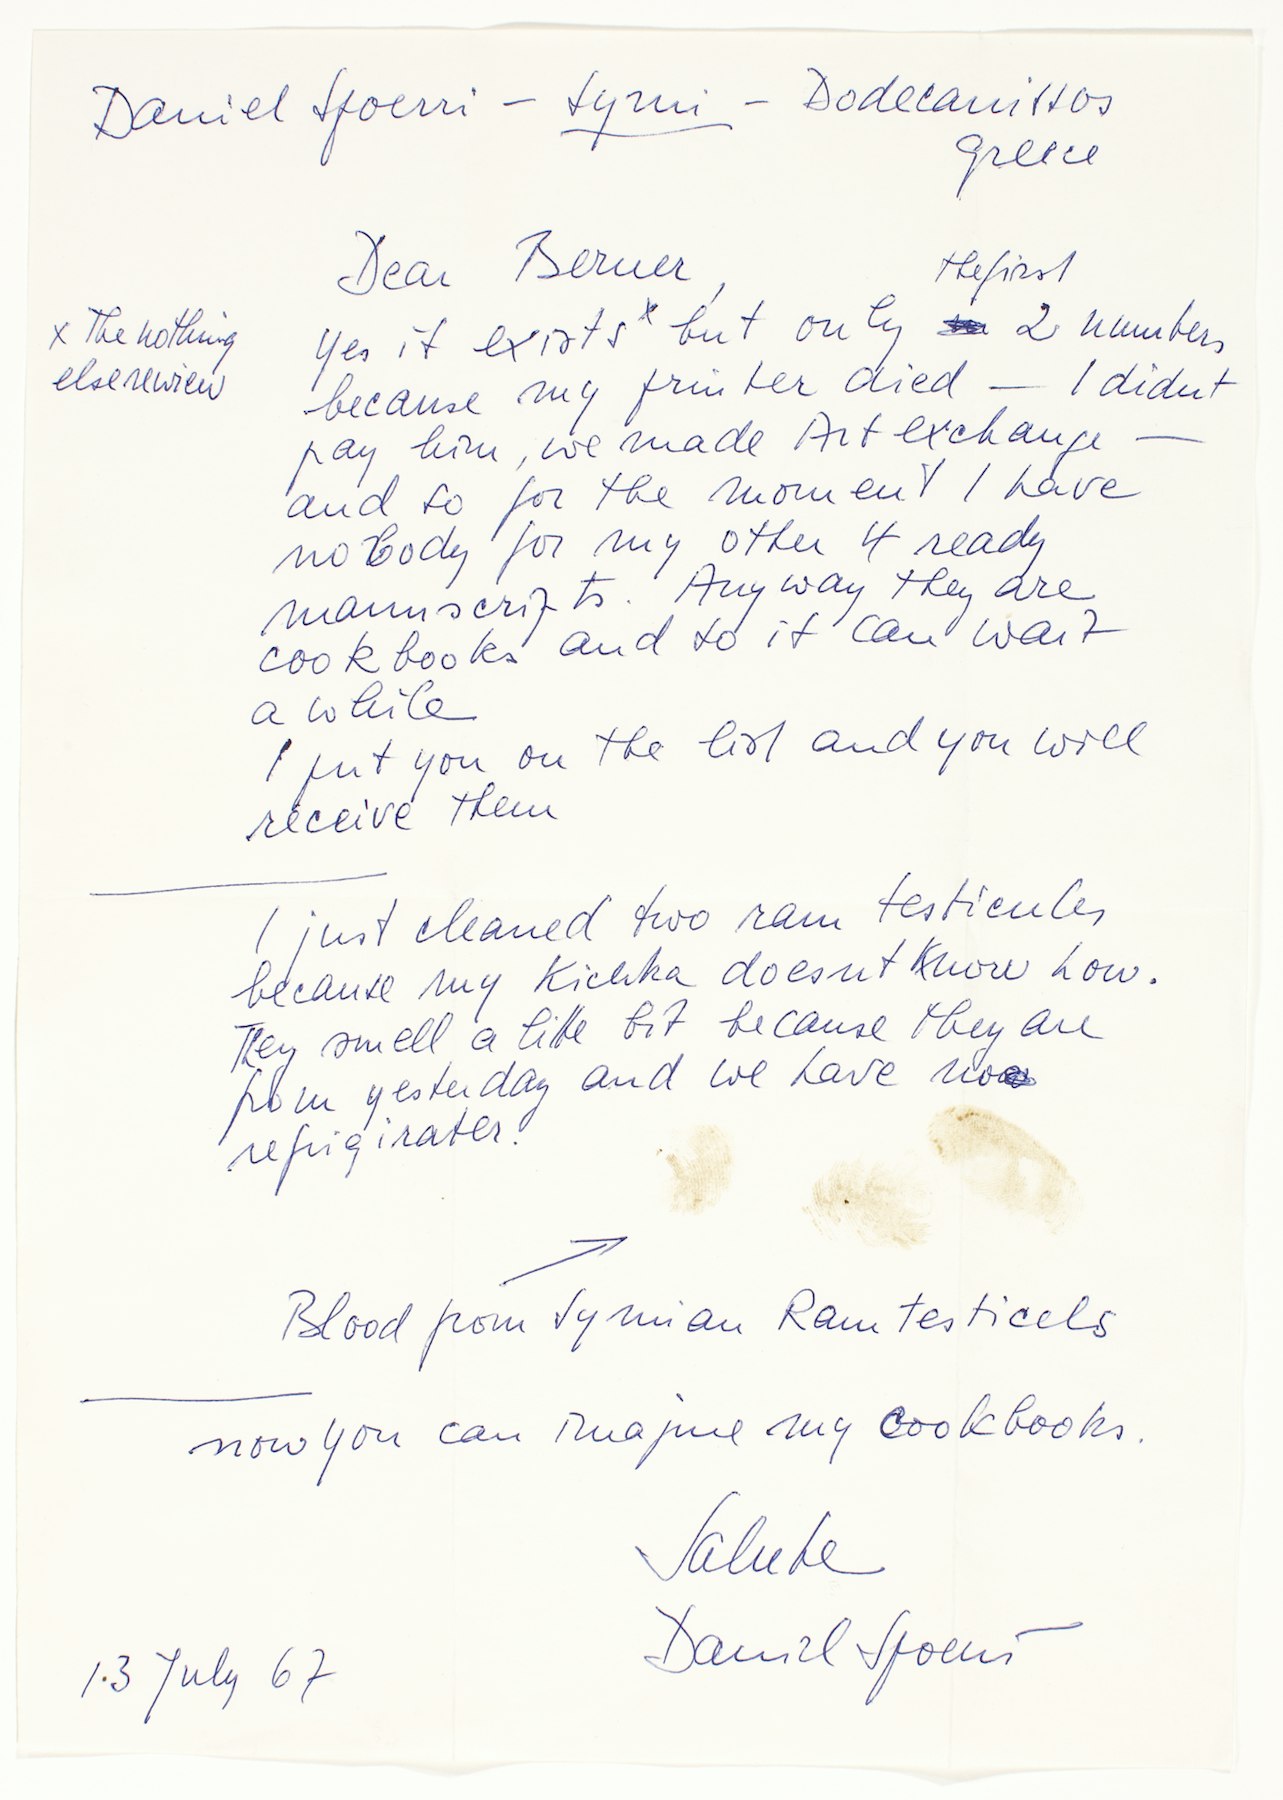 Daniel Spoerri – Symi – Dodecanissos
Greece
Dear Berner,
the first
x The nothing
else review
yes it exists x but only 2 numbers
because my printer died — I didnt
pay him, we made Art exchange —
and so for the moment I have
nobody for my other 4 ready
manuscripts. Anyway they are
cookbooks and so it can wait
a while
I put you on the list and you will
receive them
I just cleaned two ram testicules
because my Kichka doesnt know how.
They smell a little bit because they are
from yesterday and we have no
refrigirater.
Blood from Symian Ram testicels
now you can imagine my cookbooks.
Salute
Daniel Spoerri
13 July 67